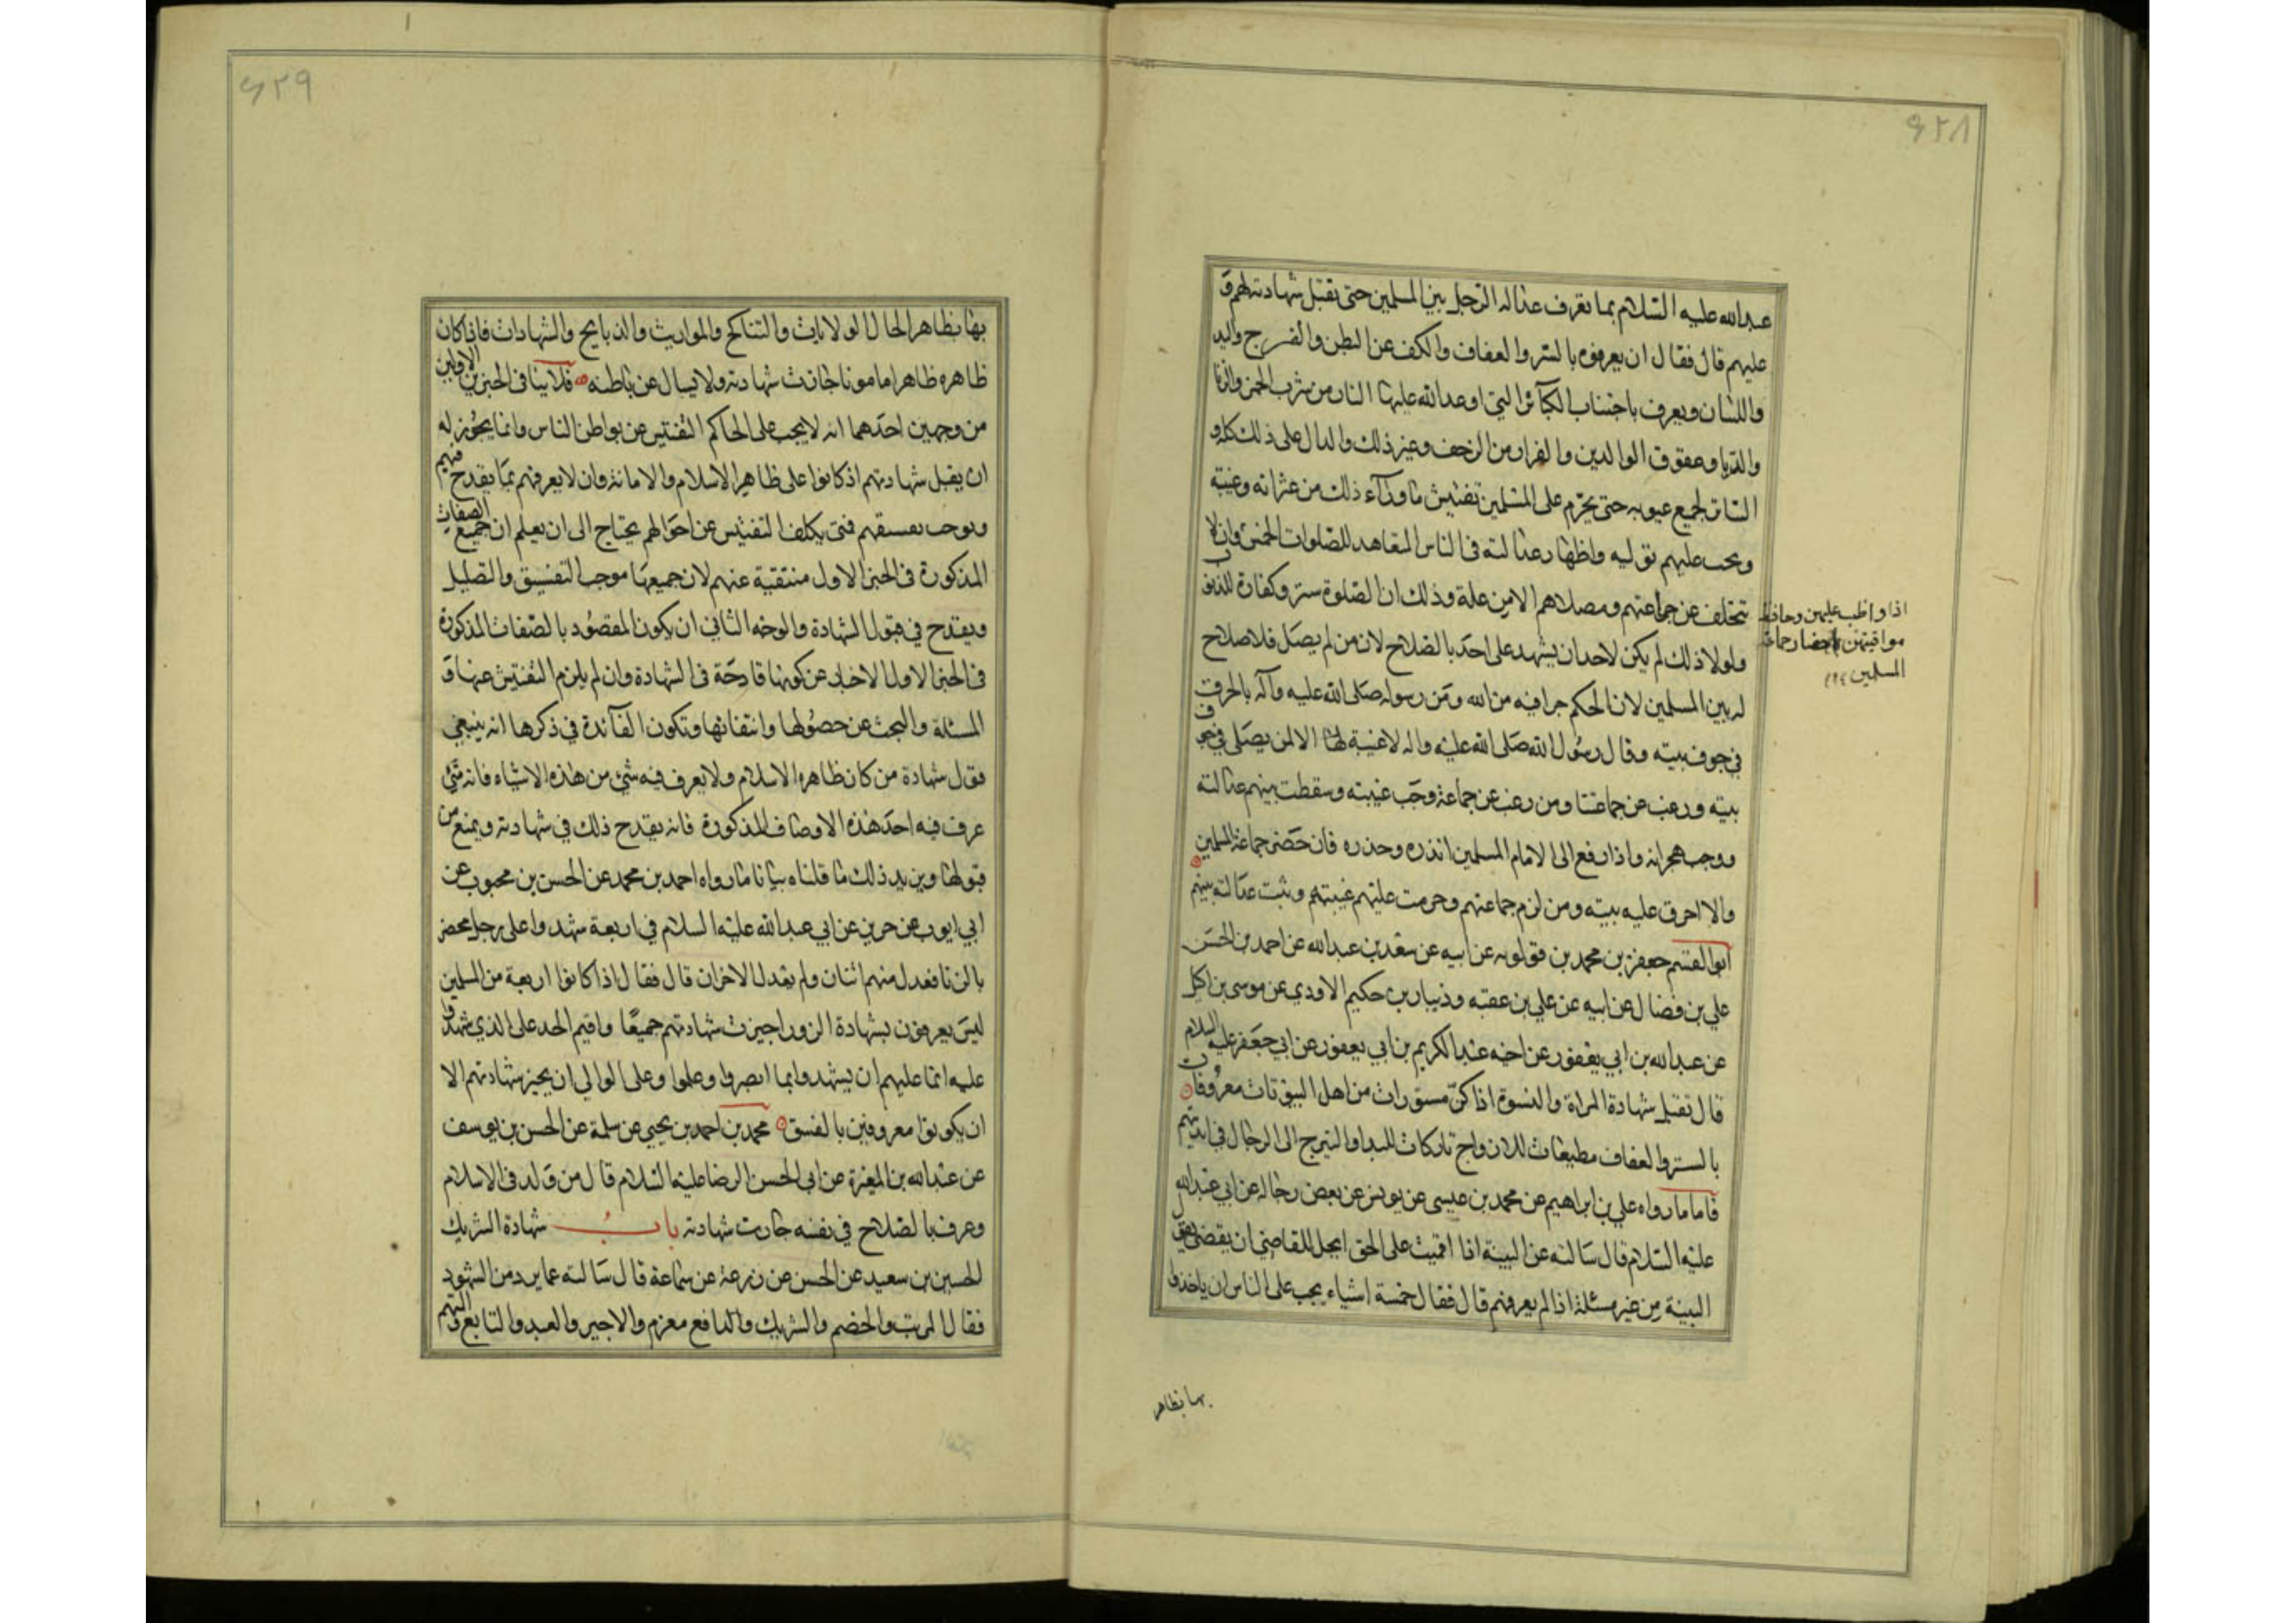 ٦٢٨
عبدالله عليه السلام بما تعرف عدالة الرجل بين المسلمين حتى تقبل شهادته لهم و
عليهم قال فقال ان يعرفوه بالستر والعفاف والكف عن البطن والفرج واليد
واللسان ويعرف باجتناب الكبائر التي اوعد الله عليها النار من شرب الخمر والزنا
والربا وعقوق الوالدين والفرار من الزحف وغير ذلك والدال على ذلك كله و
الساتر لجميع عيوبه حتى يحرم على المسلمين تفتيش ما وراء ذلك من عثراته وغيبته
ويجب عليهم توليه واظهار عدالته في الناس المتعاهد للصلوات الخمس وان لا
يتخلف عن جماعتهم ومصلاهم الا من علة وذلك ان الصلوة ستر وكفارة للذنوب
ولولا ذلك لم يكن لاحد ان يشهد على احد بالصلاح لان من لم يصل فلا صلاح
له بين المسلمين لان الحكم جرا فيه من الله ومن رسوله صلى الله عليه وآله بالحرق
في جوف بيته وقال رسول الله صلى الله عليه واله لا غيبة الا لمن يصلي في جوف
بيته ورغب عن جماعتنا ومن رغب عن جماعة وجب غيبته وسقطت بينهم عدالته
ووجب هجرانه واذا رفع الى الامام المسلمين انذره وحذره فان حضر جماعة المسلمين
والا احرق عليه بيته ومن لزم جماعتهم وحرمت عليهم غيبتهم وثبت عدالته بينهم
ابو القسم جعفر بن محمد بن قولويه عن ابيه عن سعد بن عبدالله عن احمد بن الحسن
علي بن فضال عن ابيه عن علي بن عقبه وذبيان بن حكيم الاودي عن موسى بن اكيل
عن عبدالله بن ابي يعفور عن اخيه عبد الكريم بن ابي يعفور عن ابي جعفر عليه السلام
قال تقبل شهادة المراة والنسوة اذا كن مستورات من اهل البيوتات معروفات
بالستر والعفاف مطيعات للازواج تاركات للبداو التبرج الى الرجال في انديتهم
فاما ما رواه علي بن ابراهيم عن محمد بن عيسى عن يونس عن بعض رجاله عن ابي عبدالله
عليه السلام قال سالته عن البينة اذا اقيمت على الحق ايحل للقاضي ان يقضي بقول
البينة من غير مسئلة اذا لم يعرفهم قال فقال خمسة اشياء يجب على الناس ان ياخذوا
اذا واظب عليهن وحافظ
مواقيتهن باحضار جماعة
المسلمين
بها بظاهر
٦٢٩
بها بظاهر الحال الولايات والتناكح والمواريث والذبايح والشهادات فاذا كان
ظاهره ظاهرا مامونا جازت شهادته ولا يسال عن باطنه فلا ينافي الخبرين الاولين
من وجهين احدهما انه لا يجب على الحاكم التفتيش عن بواطن الناس وانما يجوز له
ان يقبل شهادتهم اذ كانوا على ظاهر الاسلام والامانة وان لا يعرفهم بما يقدح فيهم
ويوجب تفسيقهم فمتى يكلف التفتيش عن احوالهم يحتاج الى ان يعلم ان جميع الصفات
المذكورة في الخبر الاول منتقية عنهم لان جميعها موجب التفسيق والتضليل
ويقدح في قبول الشهادة والوجه الثاني ان يكون المقصود بالصفات المذكورة
في الخبر الاول الاخبار عن كونها قادحة في الشهادة وان لم يلزم التفتيش عنها و
المسئلة والبحث عن حصولها وانتفائها وتكون الفآئدة في ذكرها انه ينبغي
قبول شهادة من كان ظاهره الاسلام ولا يعرف فيه شئ من هذه الاشياء فانه متى
عرف فيه احد هذه الاوصاف المذكورة فانه يقدح ذلك في شهادته ويمنع من
قبولها ويزيد ذلك ما قلناه بيانا ما رواه احمد بن محمد عن الحسن بن محبوب عن
ابي ايوب عن حريز عن ابي عبدالله عليه السلام في اربعة شهدوا على رجل محصن
بالزنا فعدل منهم اثنان ولم يعدل الاخران قال فقال اذا كانوا اربعة من المسلمين
ليس يعرفون بشهادة الزور اجيزت شهادتهم جميعا واقيم الحد على الذي شهدوا
عليه انما عليهم ان يشهدوا بما ابصروا وعلموا وعلى الوالي ان يجيز شهادتهم الا
ان يكونوا معروفين بالفسق محمد بن احمد بن يحيى عن سلمة عن الحسن بن يوسف
عن عبدالله بن المغيرة عن ابي الحسن الرضا عليه السلام قال من ولد في الاسلام
وعرف بالصلاح في نفسه جازت شهادته باب شهادة الشريك
الحسين بن سعيد عن الحسن عن زرعة عن سماعة قال سالته عما يرد من الشهود
فقال المريب والخصم والشريك والدافع مغرم والاجير والعبد والتابع والمتهم